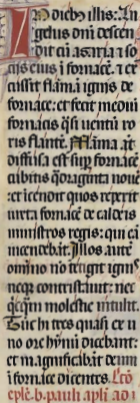 In diebus illis: An
gelus dñi descen
dit cũ azaria ⁊ so
cijs eius ĩ fornacẽ. ⁊ ex
cussit flãmã ignis de
fornace: et fecit mediũ
fornacis q̃si uentũ ro
ris flantẽ. Flãma ãt
diffusa est sup fornacẽ
cubitis q̃draginta nouẽ
et incendit quos reperit
iuxta fornacẽ de caldeis
ministros regis: qui eã
incendebãt. Illos autẽ
omnino nõ tetigit ignis
neqȝ contristauit: nec
q̃cq̃m molestie intulit.
Tunc hi tres quasi ex u
no ore hỹmnũ dicebant:
et magnificabãt deum
ĩ fornace dicentes. Lc̃o
ep̃lẽ. b. pauli apl̃i ad